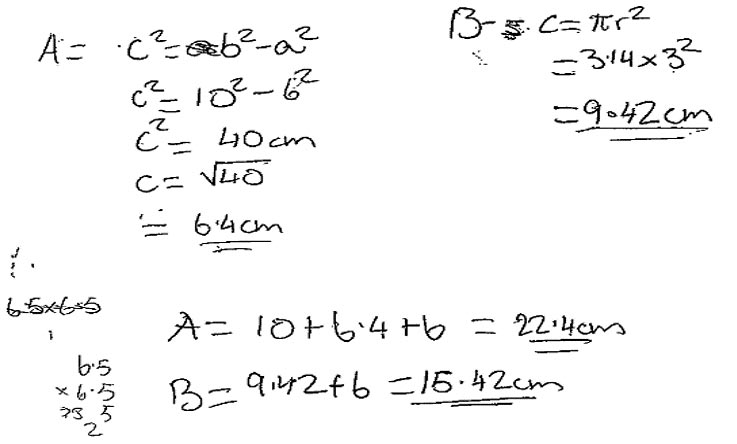 A = c² = b² - a²
c² = 10² - 6²
c² = 40cm
c = √40
= 6.4cm
B - c = πr²
= 3.14 × 3²
= 9.42cm
6.5×6.5
6.5
× 6.5
A = 10 + 6.4 + 6 = 22.4cm
B = 9.42 + 6 = 15.42cm